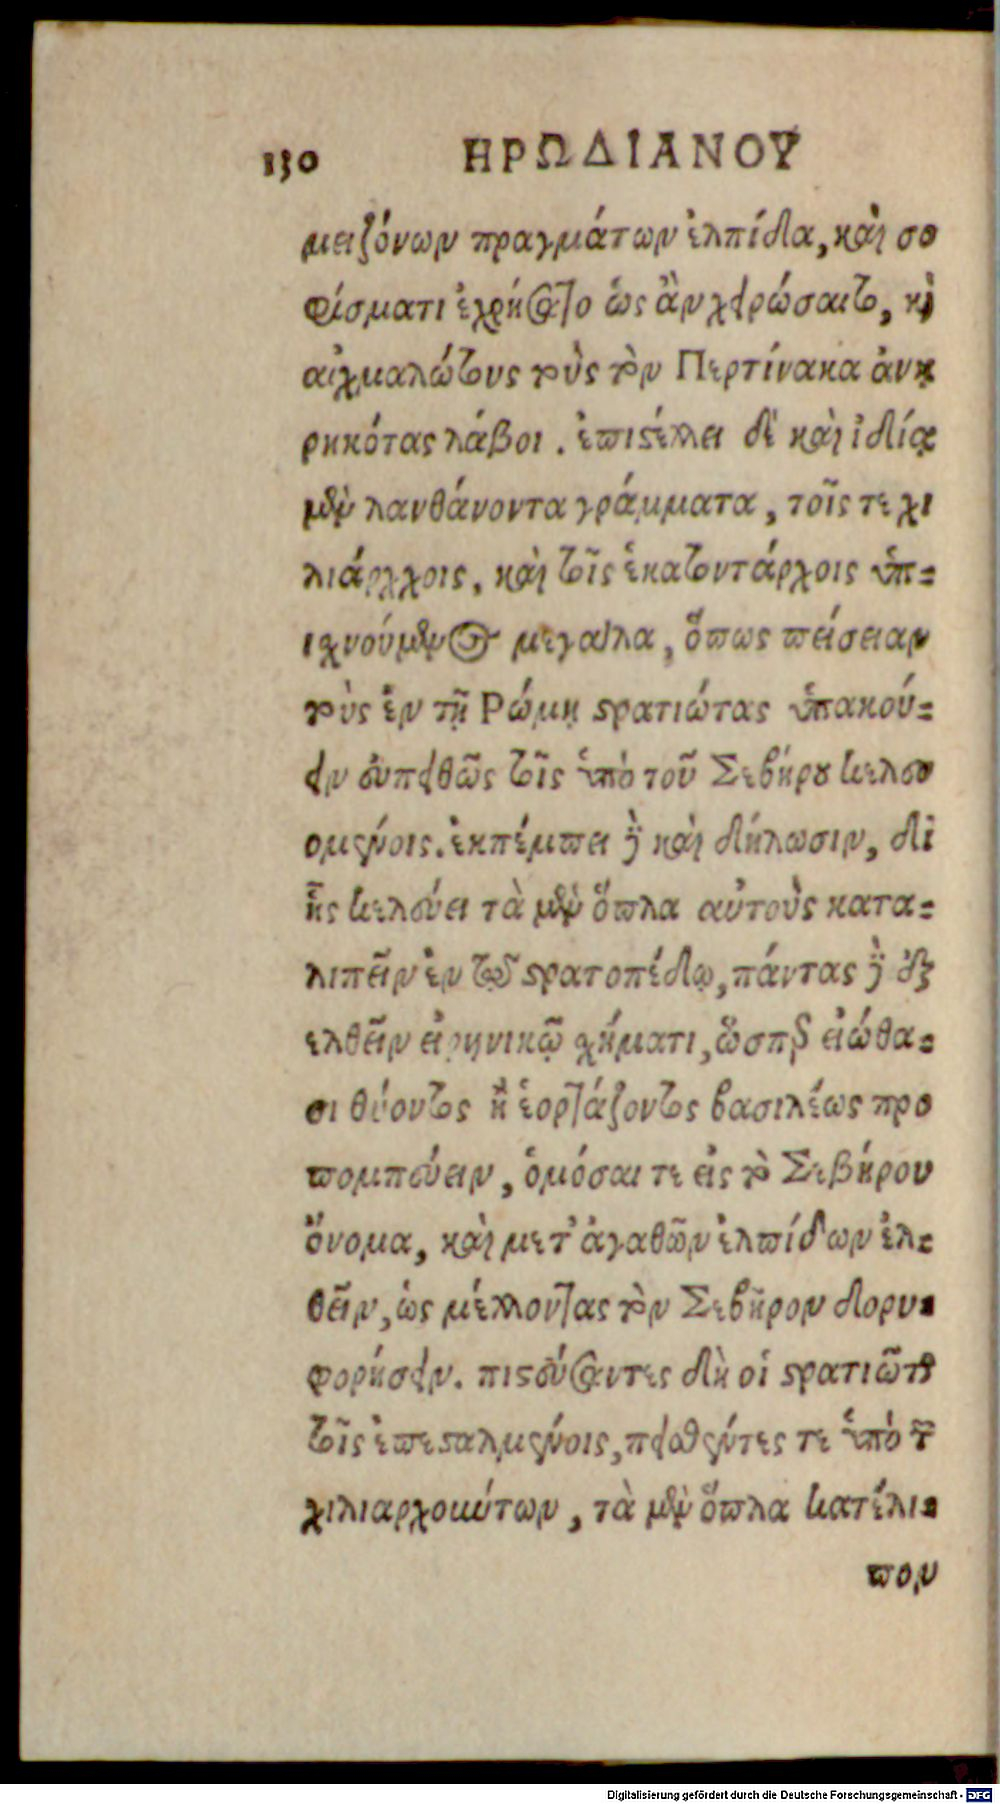 130 ΗΡΩΔΙΑΝΟΥ
μειζόνων πραγμάτων ἐλπίδα, καὶ σο
φίσματι ἐχρήσατο ὡς ἂν χειρώσαιτο, καὶ
αἰχμαλώτους τοὺς τὸν Περτίνακα ἀνῃ
ρηκότας λάβοι. ἐπιστέλλει δὲ καὶ ἰδίᾳ
μὲν λανθάνοντα γράμματα, τοῖς τε χι
λιάρχοις, καὶ τοῖς ἑκατοντάρχοις ὑπ=
ισχνούμενος μεγάλα, ὅπως πείσειαν
τοὺς ἐν τῇ Ρώμῃ στρατιώτας ὑπακού=
ειν εὐπειθῶς τοῖς ὑπὸ τοῦ Σεβήρου κελευ
ομένοις. ἐκπέμπει δὲ καὶ δήλωσιν, δι
ἧς κελεύει τὰ μὲν ὅπλα αὐτοὺς κατα=
λιπεῖν ἐν τῷ στρατοπέδῳ, πάντας δὲ ἐξ
ελθεῖν εἰρηνικῷ σχήματι, ὥσπερ εἰώθα=
σι θύοντος ἢ ἑορτάζοντος βασιλέως προ
πομπεύειν, ὀμόσαι τε εἰς τὸ Σεβήρου
ὄνομα, καὶ μετ' ἀγαθῶν ἐλπίδων ἐλ=
θεῖν, ὡς μέλλοντας τὸν Σεβῆρον δορυ=
φορήσειν. πιστεύσαντες δὴ οἱ στρατιῶται
τοῖς ἐπεσταλμένοις, πεισθέντες τε ὑπὸ τῶν
χιλιαρχούντων, τὰ μὲν ὅπλα κατέλι=
πον
Digitalisierung gefördert durch die Deutsche Forschungsgemeinschaft - DFG